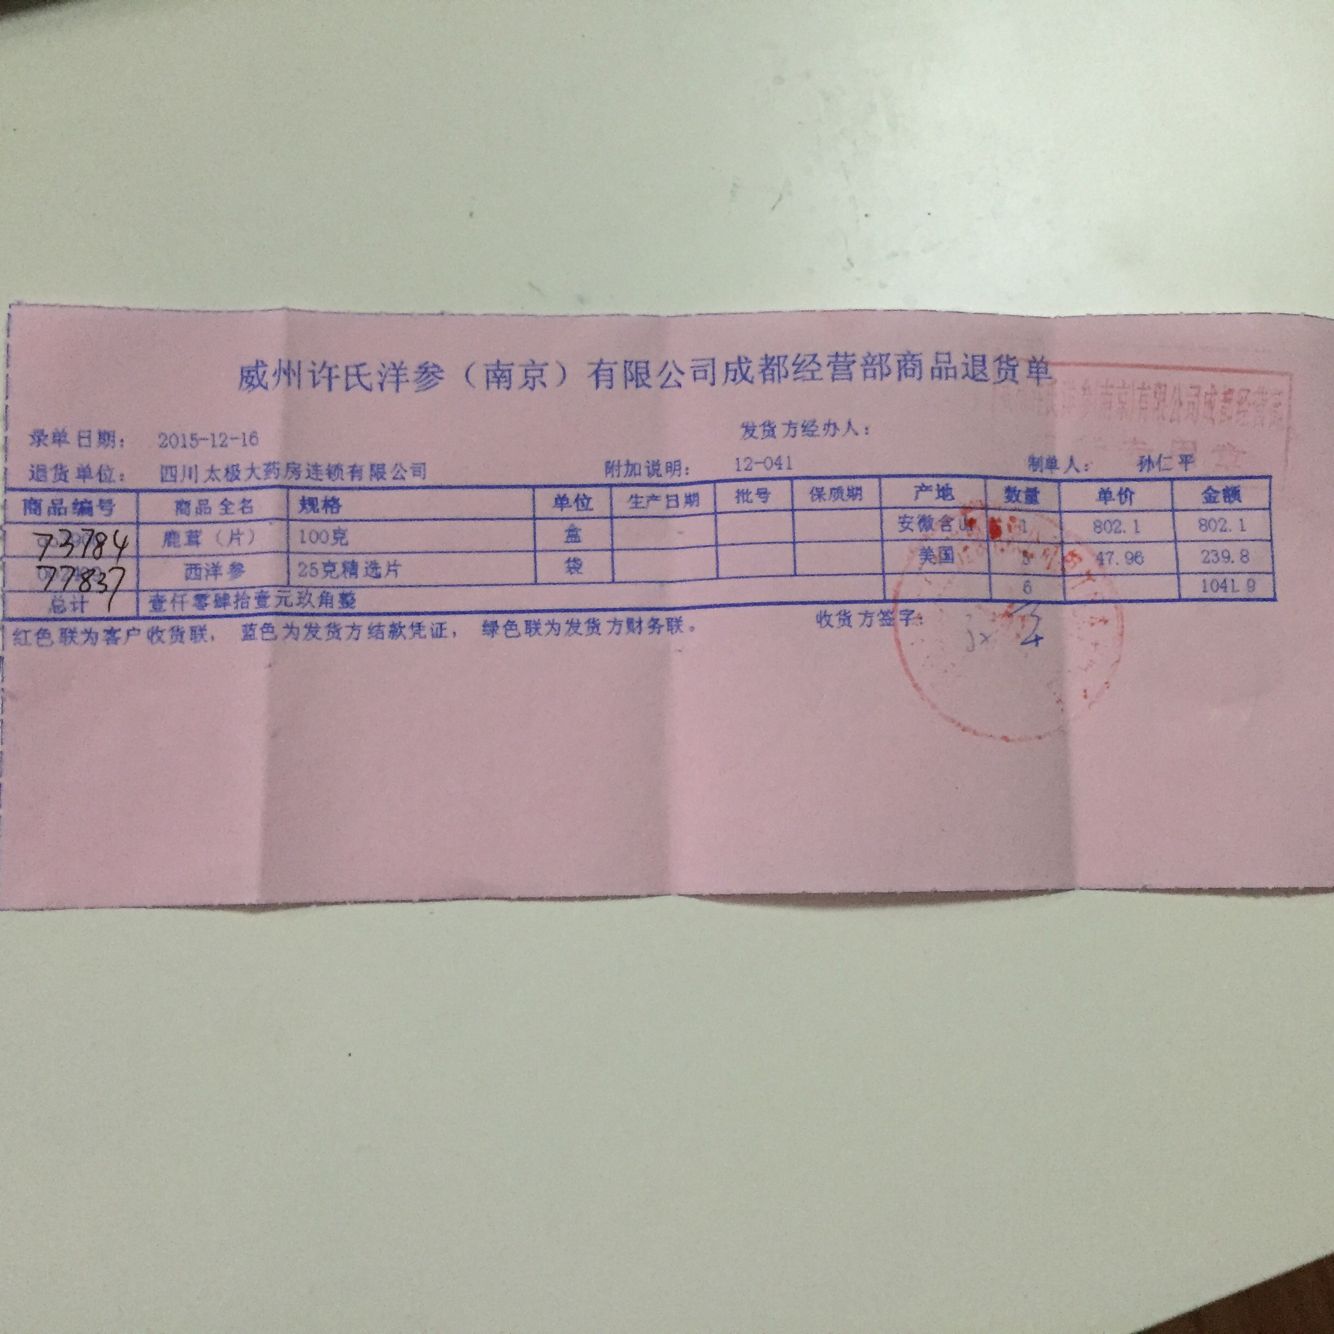 威州许氏洋参（南京）有限公司成都经营部商品退货单
有限公司成都经营部
录单日期： 2015-12-16 发货方经办人：
退货单位： 四川太极大药房连锁有限公司 附加说明： 12-041 制单人： 孙仁平
商品编号 商品全名 规格 单位 生产日期 批号 保质期 产地 数量 单价 金额
73784 鹿茸（片） 100克 盒 安徽含山 1 802.1 802.1
77837 西洋参 25克精选片 袋 美国 5 47.96 239.8
总计 壹仟零肆拾壹元玖角整 6 1041.9
红色联为客户收货联， 蓝色为发货方结款凭证， 绿色联为发货方财务联。 收货方签字：